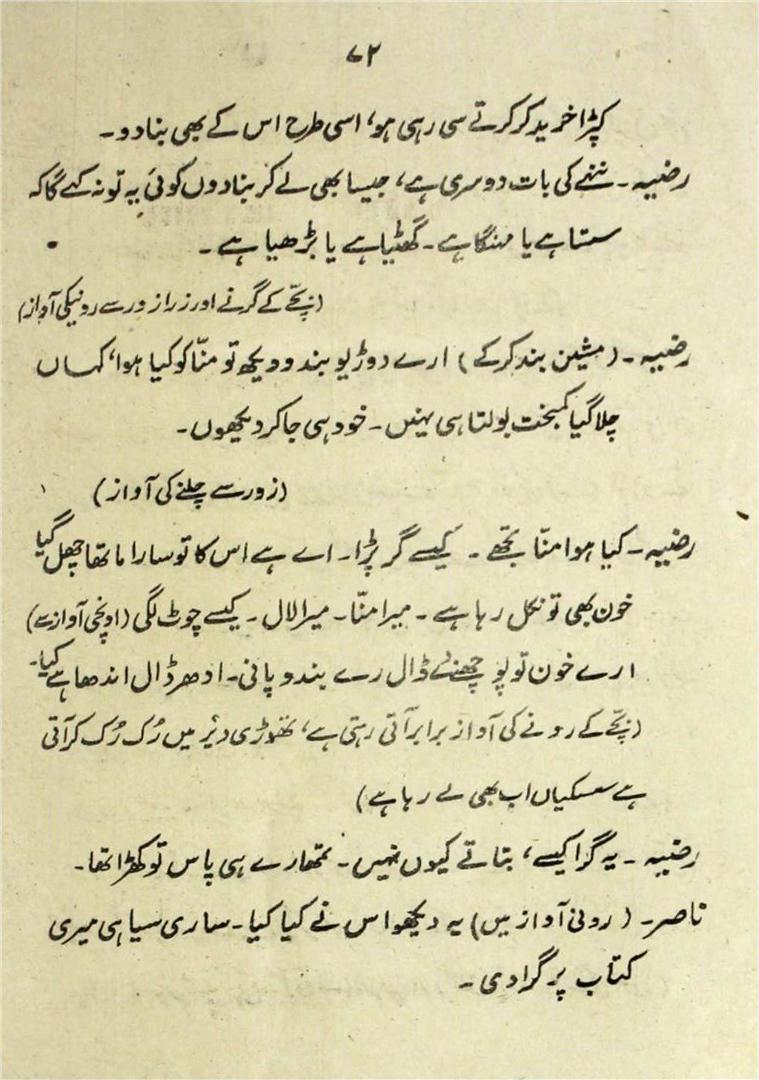 ۷۲
کپڑا خرید کر کرتے سی رہی ہو، اسی طرح اس کے بھی بنا دو۔
رضیہ۔ ننھے کی بات دوسری ہے، جیسا بھی لے کر بنا دوں کوئی یہ تو نہ کہے گا کہ
سستا ہے یا مہنگا ہے۔ گھٹیا ہے یا بڑھیا ہے۔
(بچّے کے گرنے اور زرا زور سے رونیکی آواز)
رضیہ۔ (مشین بند کر کے) ارے دوڑیو بندو دیکھ تو منّا کو کیا ہوا، کہاں
چلا گیا کمبخت بولتا ہی نہیں۔ خود ہی جا کر دیکھوں۔
(زور سے چلنے کی آواز)
رضیہ۔ کیا ہوا منّا تجھے۔ کیسے گر پڑا۔ اے ہے اس کا تو سارا ماتھا چھل گیا
خون بھی تو نکل رہا ہے۔ میرا منّا۔ میرا لال۔ کیسے چوٹ لگی (اونچی آواز سے)
ارے خون تو پو چھنے ڈال رے بندو پانی۔ ادھر ڈال اندھا ہے کیا۔
(بچّے کے رونے کی آواز برابر آتی رہتی ہے، تھوڑی دیر میں رُک رُک کر آتی
ہے سسکیاں اب بھی لے رہا ہے)
رضیہ۔ یہ گرا کیسے، بتاتے کیوں نہیں۔ تمھارے ہی پاس تو کھڑا تھا۔
ناصر۔ (رونی آواز میں) یہ دیکھو اس نے کیا کیا۔ ساری سیاہی میری
کتاب پر گرا دی۔